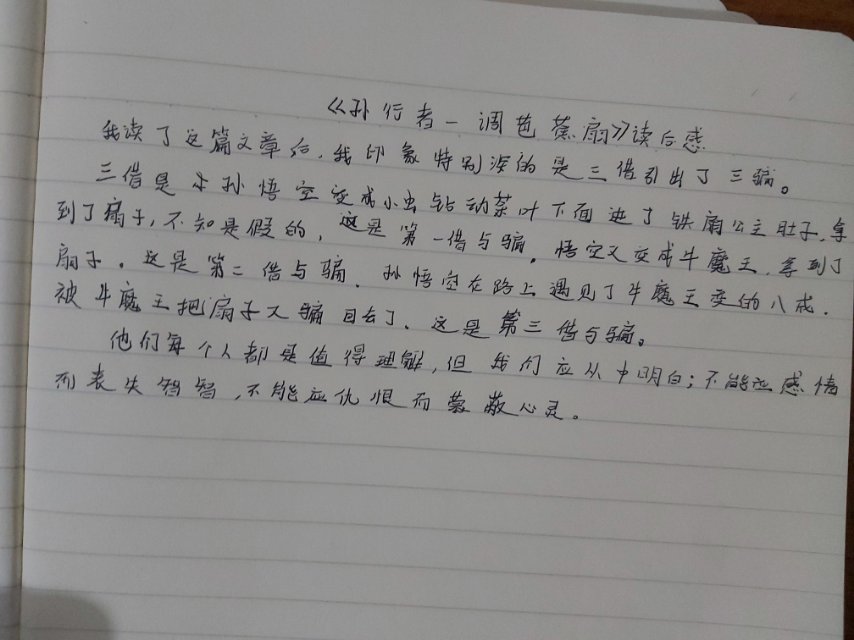 《孙行者一调芭蕉扇》读后感
我读了这篇文章后,我印象特别深的是三借引出了三骗。
三借是孙悟空变成小虫钻动菜叶下面进了铁扇公主肚子,拿
到了扇子,不知是假的,这是第一借与骗。悟空又变成牛魔王,拿到了
扇子,这是第二借与骗,孙悟空在路上遇见了牛魔王变的八戒,
被牛魔王把扇子又骗回去了,这是第三借与骗。
他们每个人都是值得理解,但我们应从中明白;不能应感情
而丧失智智,不能应仇恨而蒙蔽心灵。